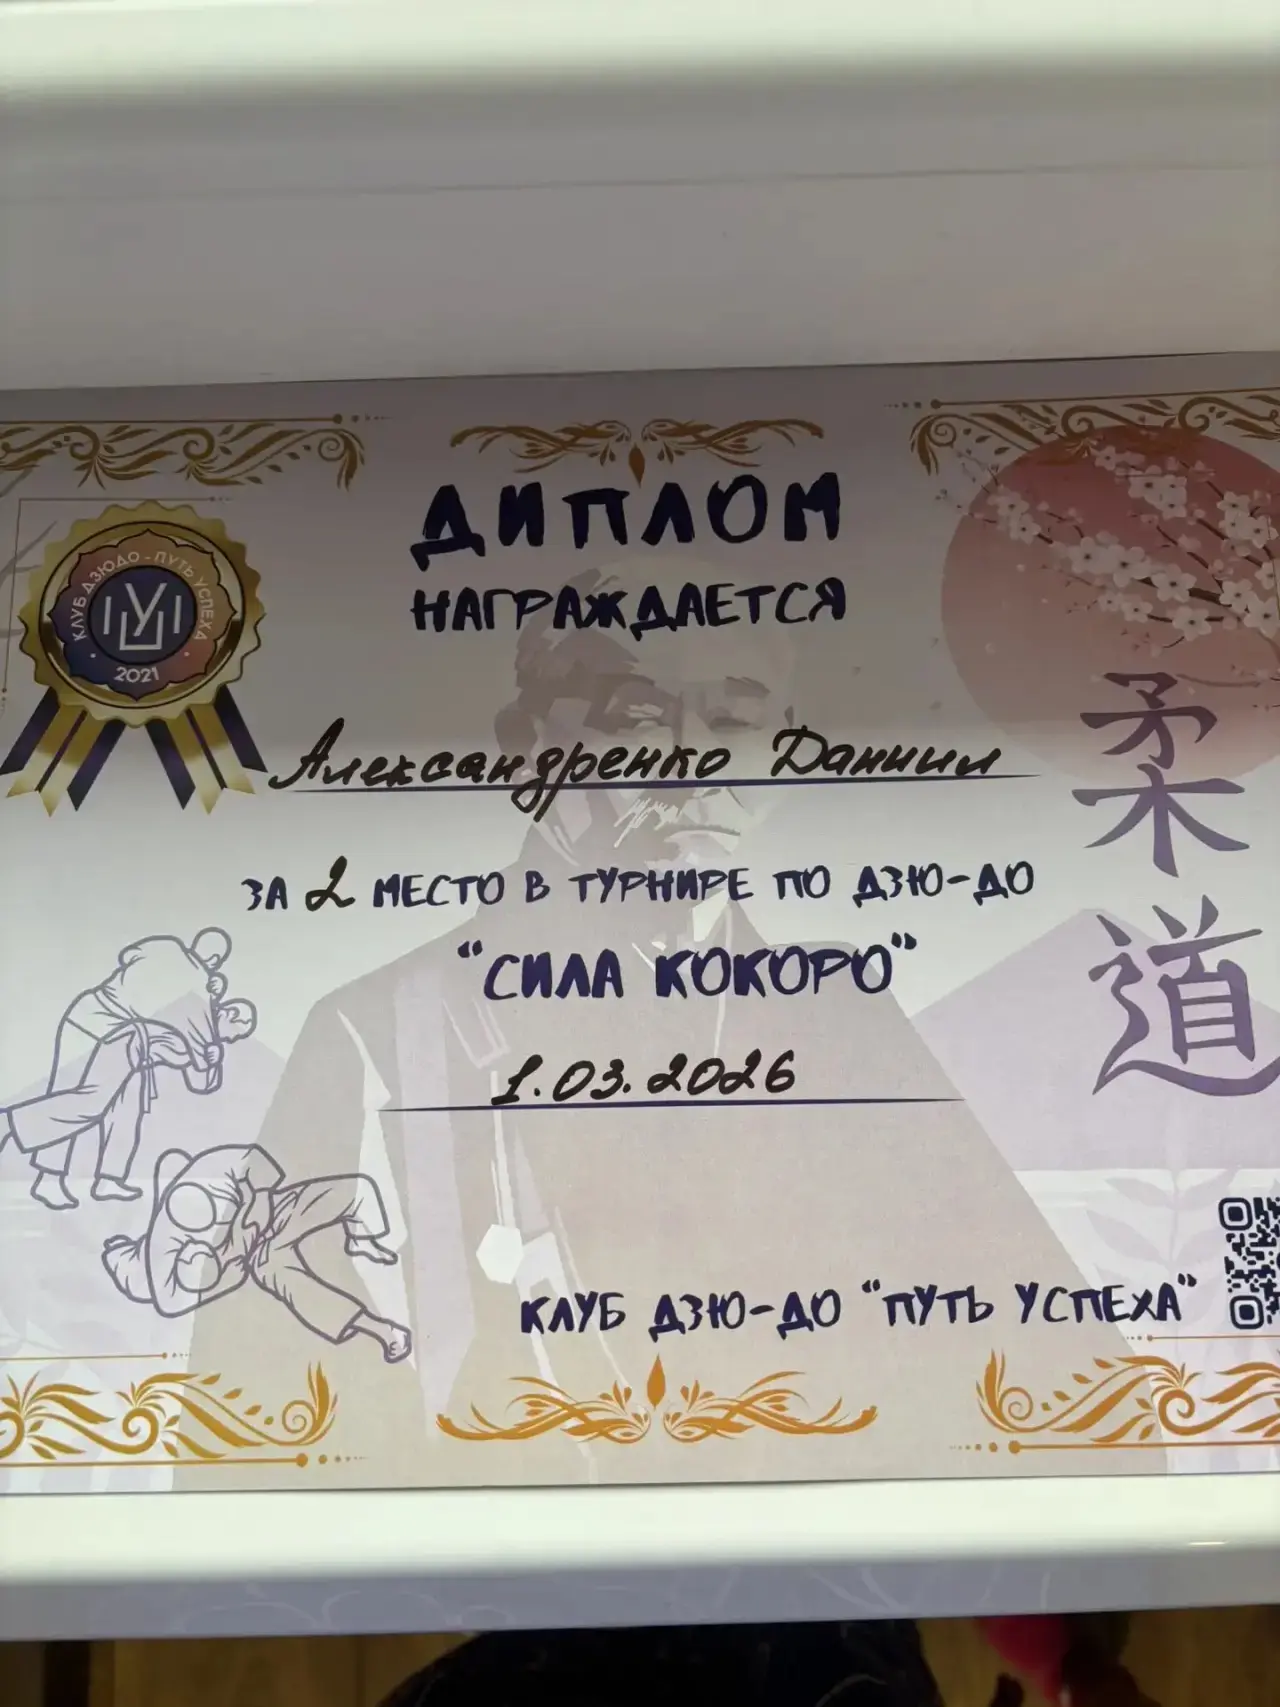 ДИПЛОМ
НАГРАЖДАЕТСЯ
КЛУБ ДЗЮДО - ПУТЬ УСПЕХА
2021
Александренко Даниил
ЗА 2 МЕСТО В ТУРНИРЕ ПО ДЗЮ-ДО
"СИЛА КОКОРО"
1.03.2026
柔道
КЛУБ ДЗЮ-ДО "ПУТЬ УСПЕХА"